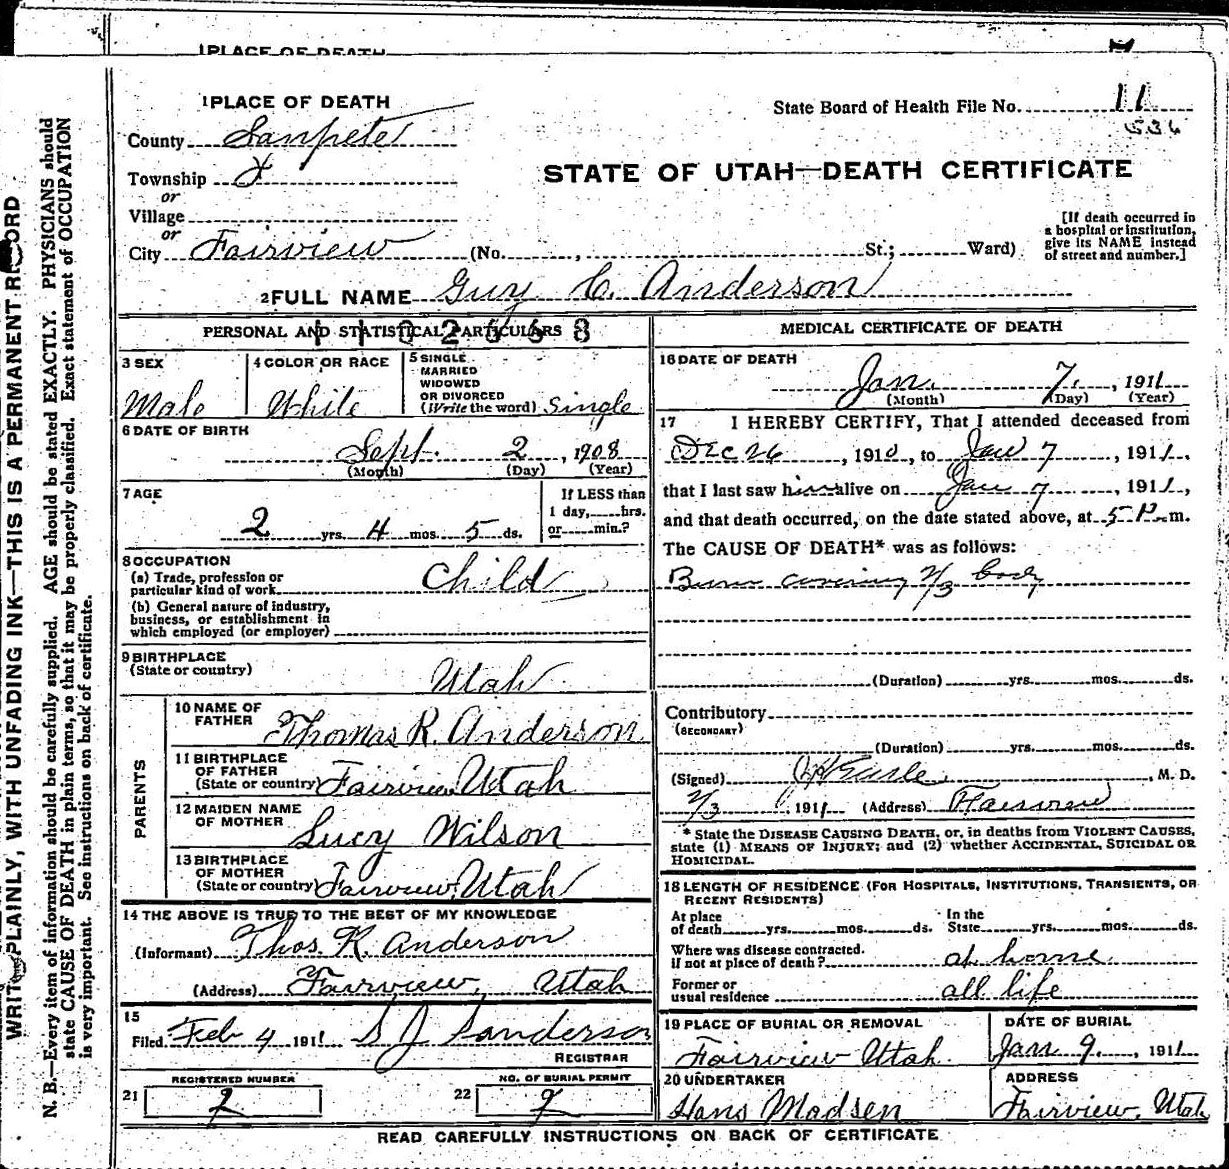 1 PLACE OF DEATH
State Board of Health File No. 11
County Sanpete
Township X
STATE OF UTAH—DEATH CERTIFICATE
or
Village
or
City Fairview (No. , St.; Ward)
[If death occurred in
a hospital or institution,
give its NAME instead
of street and number.]
2 FULL NAME Guy C. Anderson
PERSONAL AND STATISTICAL PARTICULARS
3 SEX
Male
4 COLOR OR RACE
White
5 SINGLE
MARRIED
WIDOWED
OR DIVORCED
(Write the word) Single
6 DATE OF BIRTH
Sept. 2, 1908
(Month) (Day) (Year)
7 AGE
2 yrs. 4 mos. 5 ds.
If LESS than
1 day, hrs.
or min.?
8 OCCUPATION
(a) Trade, profession or
particular kind of work Child
(b) General nature of industry,
business, or establishment in
which employed (or employer)
9 BIRTHPLACE
(State or country) Utah
PARENTS
10 NAME OF
FATHER Thomas R. Anderson
11 BIRTHPLACE
OF FATHER
(State or country) Fairview Utah
12 MAIDEN NAME
OF MOTHER Lucy Wilson
13 BIRTHPLACE
OF MOTHER
(State or country) Fairview, Utah
14 THE ABOVE IS TRUE TO THE BEST OF MY KNOWLEDGE
(Informant) Thos. R. Anderson
(Address) Fairview, Utah
15
Filed Feb 4 1911 S J Sanderson
REGISTRAR
REGISTERED NUMBER
21 2
NO. OF BURIAL PERMIT
22 2
MEDICAL CERTIFICATE OF DEATH
16 DATE OF DEATH
Jan. 7, 1911
(Month) (Day) (Year)
17 I HEREBY CERTIFY, That I attended deceased from
Dec 26, 1910, to Jan 7, 1911,
that I last saw him alive on Jan 7, 1911,
and that death occurred, on the date stated above, at 5 P. m.
The CAUSE OF DEATH* was as follows:
Burn covering 2/3 body
(Duration) yrs. mos. ds.
Contributory
(SECONDARY)
(Duration) yrs. mos. ds.
(Signed) , M. D.
2/3, 1911 (Address) Fairview
* State the DISEASE CAUSING DEATH, or, in deaths from VIOLENT CAUSES,
state (1) MEANS OF INJURY; and (2) whether ACCIDENTAL, SUICIDAL OR
HOMICIDAL.
18 LENGTH OF RESIDENCE (FOR HOSPITALS, INSTITUTIONS, TRANSIENTS, OR
RECENT RESIDENTS)
At place
of death yrs. mos. ds.
In the
State yrs. mos. ds.
Where was disease contracted.
if not at place of death? at home.
Former or
usual residence all life
19 PLACE OF BURIAL OR REMOVAL
Fairview Utah.
DATE OF BURIAL
Jan 9, 1911
20 UNDERTAKER
Hans Madsen
ADDRESS
Fairview, Utah
READ CAREFULLY INSTRUCTIONS ON BACK OF CERTIFICATE
WRITE PLAINLY, WITH UNFADING INK—THIS IS A PERMANENT RECORD
N. B.—Every item of information should be carefully supplied. AGE should be stated EXACTLY. PHYSICIANS should
state CAUSE OF DEATH in plain terms, so that it may be properly classified. Exact statement of OCCUPATION
is very important. See instructions on back of certificate.